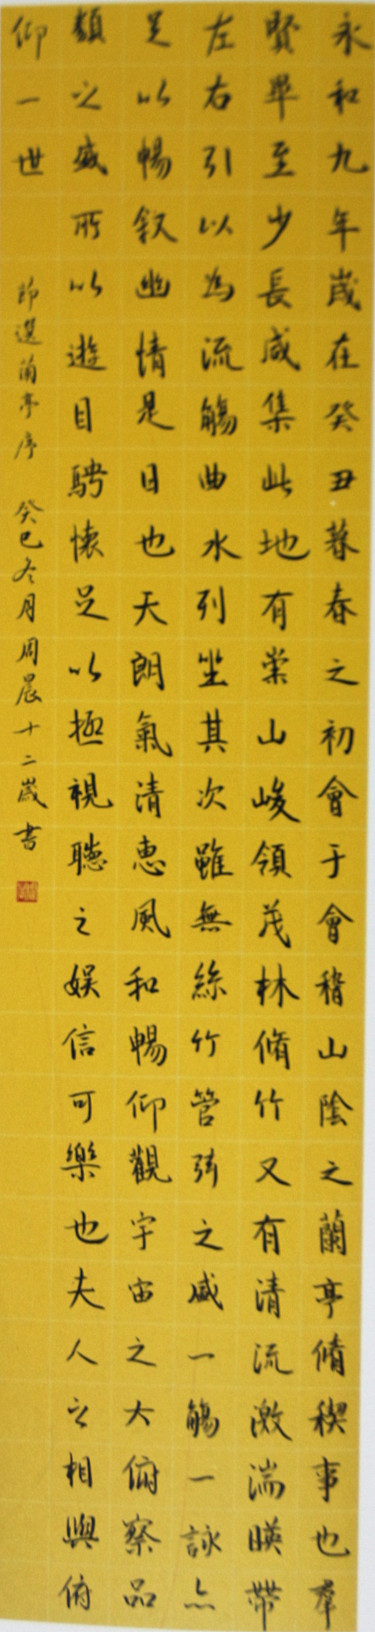 永和九年歲在癸丑暮春之初會于會稽山陰之蘭亭脩稧事也羣
賢畢至少長咸集此地有崇山峻領茂林脩竹又有清流激湍暎帶
左右引以為流觴曲水列坐其次雖無絲竹管弦之盛一觴一詠亦
足以暢敘幽情是日也天朗氣清惠風和暢仰觀宇宙之大俯察品
類之盛所以遊目騁懷足以極視聽之娛信可樂也夫人之相與俯
仰一世
節選蘭亭序 癸巳冬月周晨十二歲書